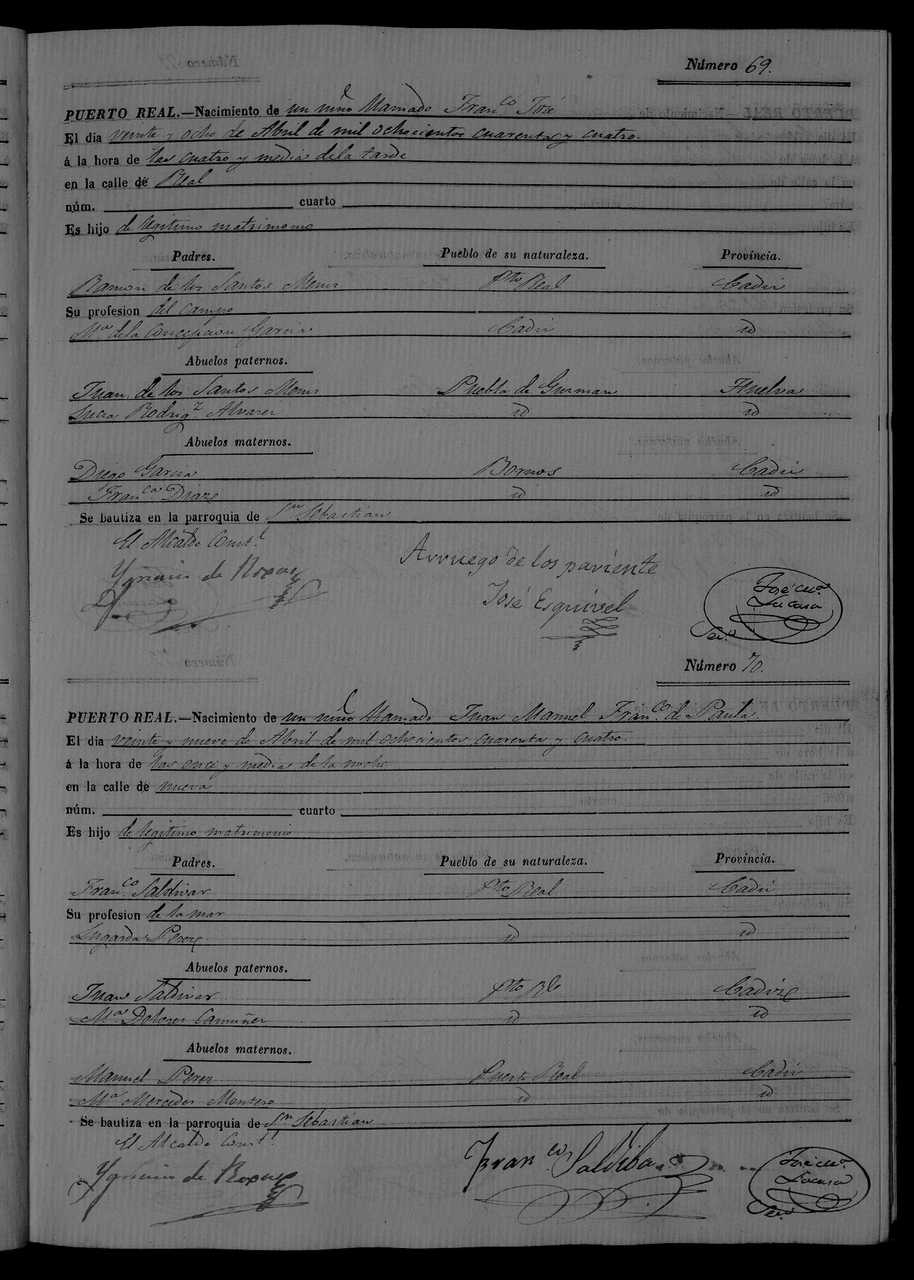 Número 69.
PUERTO REAL.—Nacimiento de un niño llamado Fran.co José
El dia veinte y ocho de Abril de mil ochocientos cuarenta y cuatro.
á la hora de las cuatro y media de la tarde
en la calle de Real
núm. cuarto
Es hijo de legitimo matrimonio
Padres. Pueblo de su naturaleza. Provincia.
Ramon de los Santos Pto Real Cadiz
Su profesion del campo
Ma. de la Concepcion Garcia Cadiz id
Abuelos paternos.
Juan de los Santos Puebla de Guzman Huelva
Rodrigz Alvarez id id
Abuelos maternos.
Diego Garcia Bornos Cadiz
Fran.ca Diaz id id
Se bautiza en la parroquia de Sn Sebastian
El Alcalde Const.l
Arruego de los pariente
Ygnacio de
José Esquivel
José M.a
Lucasa
Sec.o
Número 70.
PUERTO REAL.—Nacimiento de un niño llamado Juan Manuel Fran.co d Paula.
El dia veinte y nueve de Abril de mil ochocientos cuarenta y cuatro.
á la hora de las once y media de la noche
en la calle de nueva
núm. cuarto
Es hijo de legitimo matrimonio
Padres. Pueblo de su naturaleza. Provincia.
Fran.co Saldivar Pto Real Cadiz
Su profesion de la mar
Lugarda Perez id id
Abuelos paternos.
Juan Saldivar Pto Rl Cadiz
Ma. Dolores Camuñez id id
Abuelos maternos.
Manuel Perez Puerto Real Cadiz
Ma. Mercedes Montero id id
Se bautiza en la parroquia de Sn Sebastian
El Alcalde Const.l
Ygnacio de
Fran co Saldiba
José M.a
Sec.o